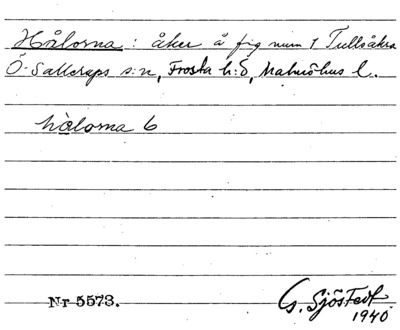 Hålorna : åker å fig num 1 Tullsåkra
Ö. Sallerups s:n, Frosta h:d, Malmöhus l.
hålorna 6
Nr 5573.
G. Sjöstedt
1940.